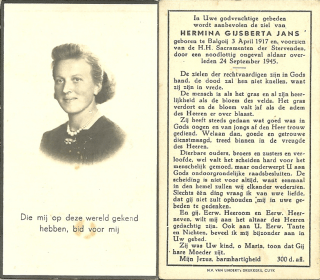 Die mij op deze wereld gekend
hebben, bid voor mij
In Uwe godvruchtige gebeden
wordt aanbevolen de ziel van
HERMINA GIJSBERTA JANS
geboren te Balgoij 3 April 1917 en, voorzien
van de H.H. Sacramenten der Stervenden,
door een noodlottig ongeval aldaar overleden
24 September 1945.
De zielen der rechtvaardigen zijn in Gods
hand, de dood zal hen niet aanraken, want
zij zijn in vrede.
De mensch is als het gras en al zijn heerlijkheid
als de bloem des velds. Het gras
verdort en de bloem valt af, maar het woord
des Heeren blijft in eeuwigheid.
Zij heeft steeds gedaan wat goed was in
Gods oogen en van jongs af den Heer trouw
gediend. Welaan dan, goede en getrouwe
dienstmaagd, treed binnen in de vreugde
des Heeren.
Dierbare ouders, broers en zusters en verloofde,
wel valt het scheiden hard voor het
menschelijk gemoed, maar onderwerpt U aan
Gods ondoorgrondelijke raadsbesluiten. De
scheiding is niet voor altijd, want eenmaal
in den hemel zullen wij elkander wederzien.
Slechts één ding vraag ik van U allen, en
dat is, dat gij niet zult ophouden mij
in Uwe gebeden te gedenken.
En gij, Eerw. Heeroom en Eerw.
gij niet
ook aan U. Eerw. Tante
en Nichten, beveel ik mij in Uwe gebeden
aan.
Zij was Uw kind, o Maria, toon dat Gij
hare Moeder zijt.
Mijn Jezus, barmhartigheid 300 d. afl.